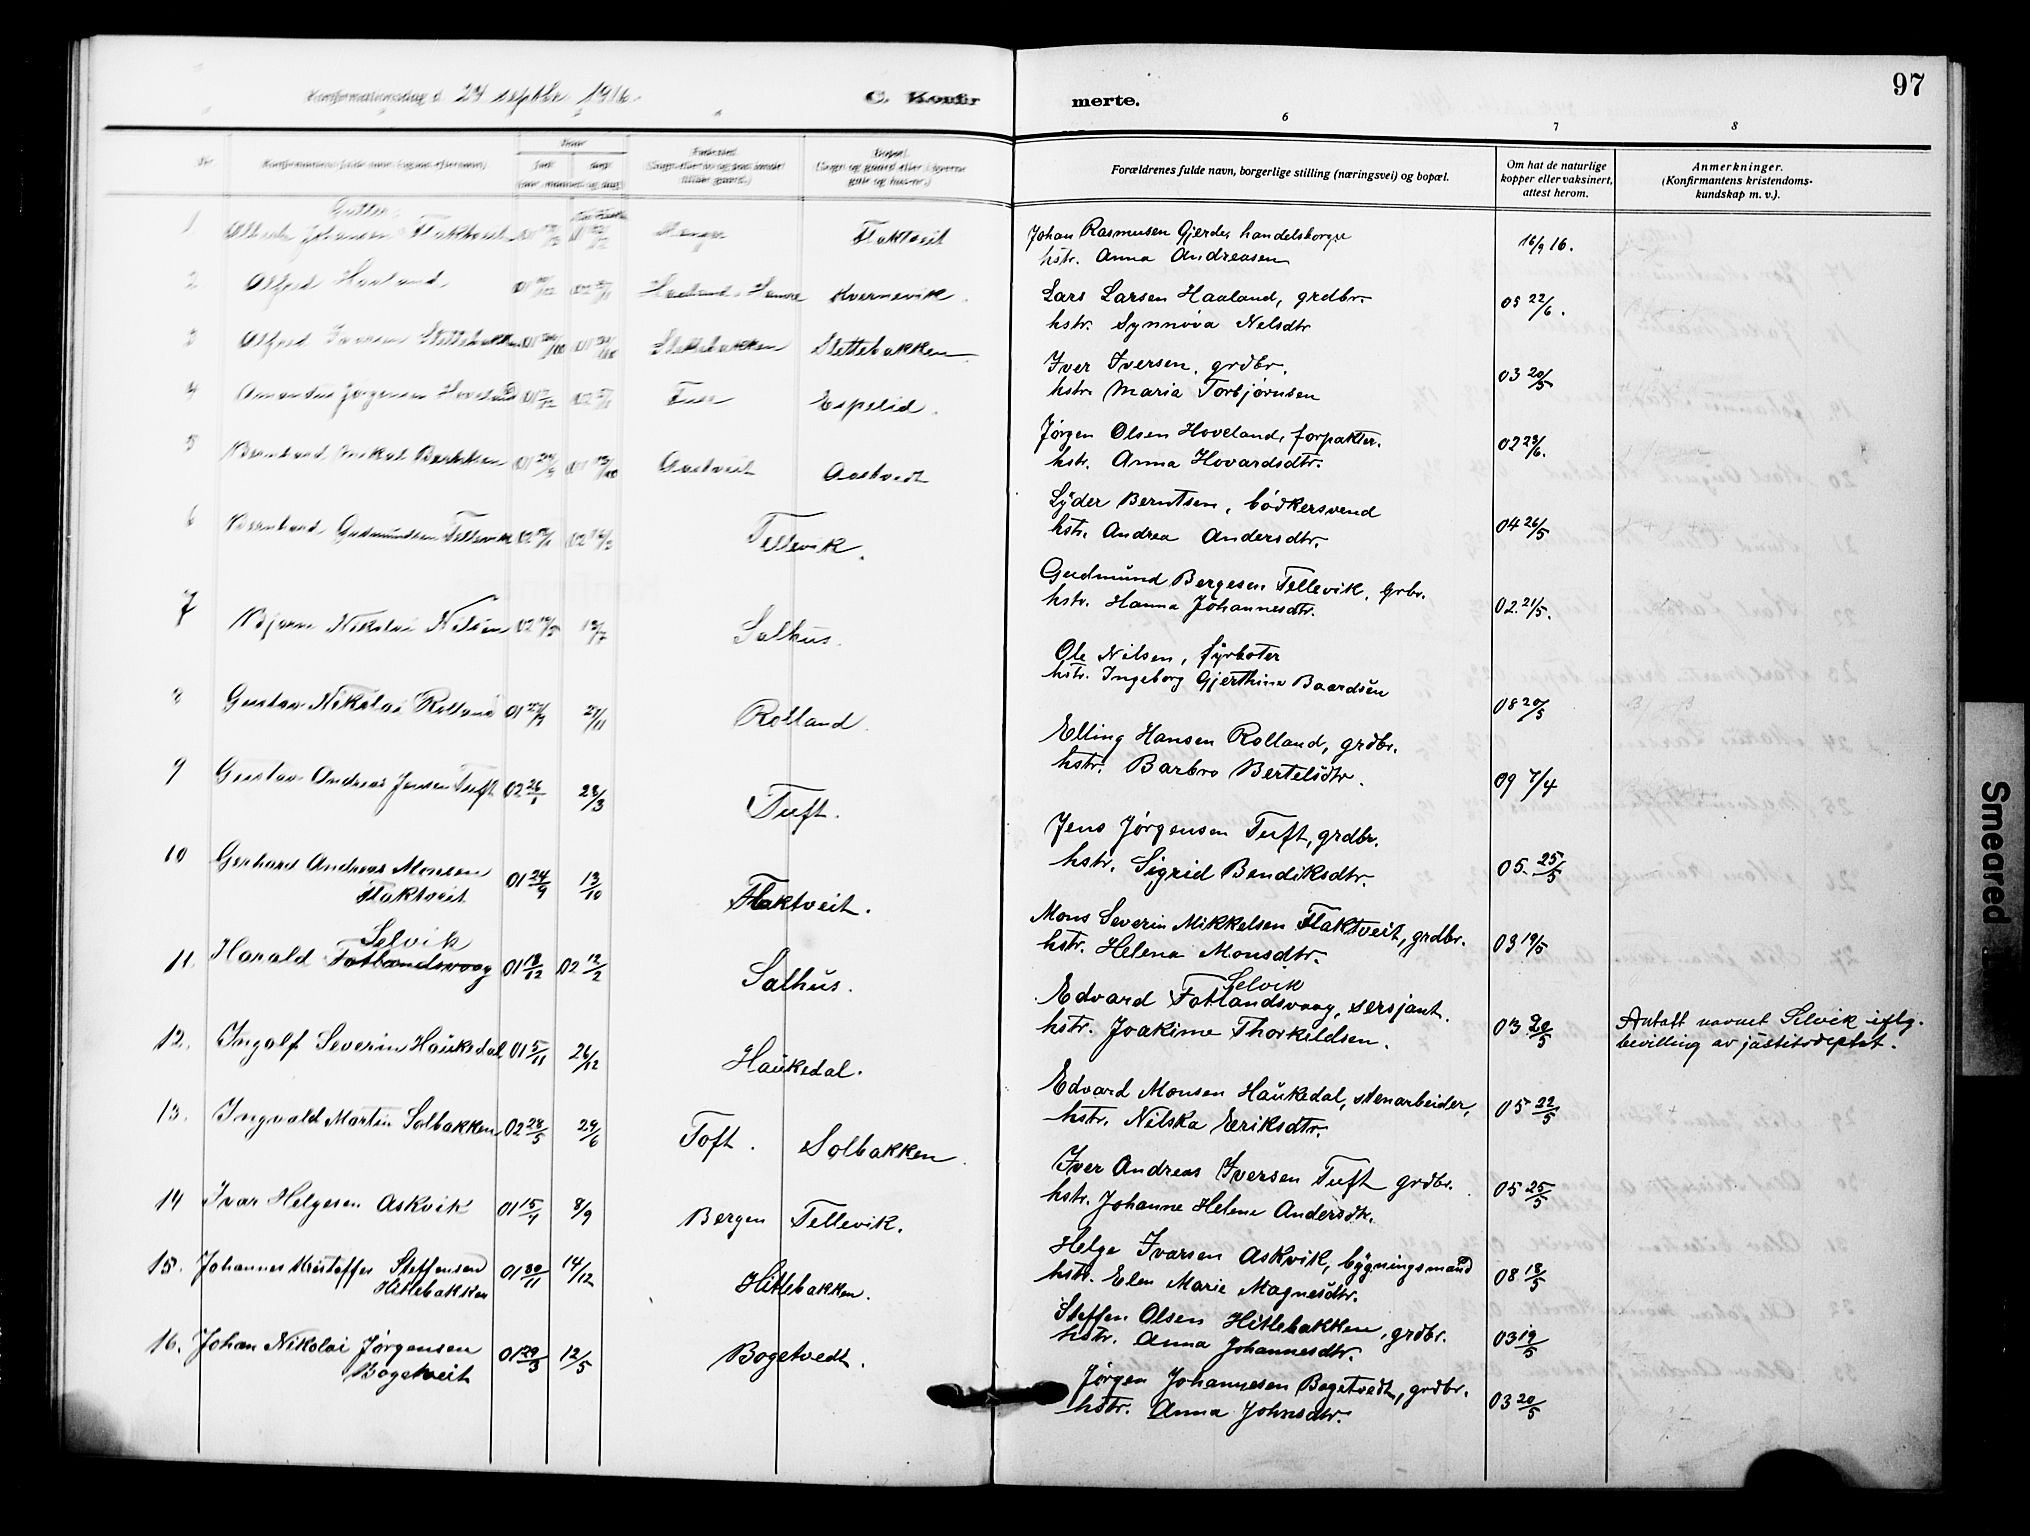 Konfirmationsdag d. 24 septbr. 1916.
C. Konfir
merte.
97
6
7
8
Nr.
Konfirmantens fulde navn (ogsaa efternavn)
født
døpt
(aar, maaned og dag)
Fødested
Bopæl
Forældrenes fulde navn, borgerlige stilling (næringsvei) og bopæl.
Om hat de naturlige kopper eller vaksinert, attest herom.
Anmerkninger.
(Konfirmantens kristendoms-kundskap m. v.).
Gutter
1 Johansen Flaktveit Flaktveit
Johan Rasmusen Gjerde, handelsborger 16/9 16.
hstr. Anna Andreasen
2 Alfred Haaland Haaland, Hamre Kvernevik.
Lars Larsen Haaland, grdbr. 05 22/6.
hstr. Synnøva Nelsdtr
3 Alfred Iversen Slettebakken Slettebakken Slettebakken
Iver Iversen, grdbr. 03 20/5
hstr. Maria Torbjørnsen
4 Amandus Jørgensen Hoveland Fuse Espelid.
Jørgen Olsen Hoveland, forpakter. 02 23/6.
hstr. Anna Hovardsdtr.
5 Bernhard Berntsen Aastveit Aastvedt
Lyder Berntsen, bødkersvend 04 26/5
hstr. Andrea Andersdtr.
6 Bernhard Gudmundsen Tellevik Tellevik.
Gudmund Bergesen Tellevik, grbr. 02 21/5.
hstr. Hanna Johannesdtr.
7 Bjarne Nikolai Nilsen 13/7 Salhus.
Ole Nilsen, fyrbøter
hstr. Ingeborg Gjerthine Baardsen 08 20/5
8 Gustav Nikolai Rolland Rolland.
Elling Hansen Rolland, grdbr.
hstr. Barbro Bertelsdtr. 09 7/4
9 Gustav Andreas Jensen Tuft 02 26/1 23/3 Tuft.
Jens Jørgensen Tuft, grdbr.
hstr. Sigrid Bendiksdtr. 05. 25/5
10 Gerhard Andreas Monsen Flaktveit 01 24/9 13/10 Flaktveit.
Mons Severin Mikkelsen Flaktveit, grdbr. 03 19/5
hstr. Helena Monsdtr.
11. Harald Fotlandsvaag Selvik 01 18/12 02 12/2 Salhus.
Edvard Fotlandsvaag, Selvik sersjant.
hstr. Joakime Thorkildsen. 03 20/5
Antatt navnet Selvik iflg.
bevilling av justitsdeptet.
12. Ingolf Severin Haukedal 01 5/11 26/12 Haukedal.
Edvard Monsen Haukedal, stenarbeider, 05 22/5
hstr. Nilska Eriksdtr.
13. Ingvald Martin Solbakken 02 28/5 29/6 Toft. Solbakken.
Iver Andreas Iversen Tuft grdbr. 05 25/5
hstr. Johanne Helene Andersdtr.
14 Ivar Helgesen Askvik 01 15/7 8/9 Bergen Tellevik.
Helge Ivarsen Askvik, bygningsmand 08 18/5
hstr. Elen Marie Magnesdtr.
15. Johannes Kristoffer Steffensen Hitlebakken 01 30/11 14/12 Hitlebakken.
Steffen Olsen Hitlebakken, grdbr. 03 19/5
hstr. Anna Johannesdtr.
16. Johan Nikolai Jørgensen Bogetveit 01 29/3 12/5 Bogetvedt.
Jørgen Johannesen Bogetvedt, grdbr. 03 20/5
hstr. Anna Johnsdtr.
Smeared